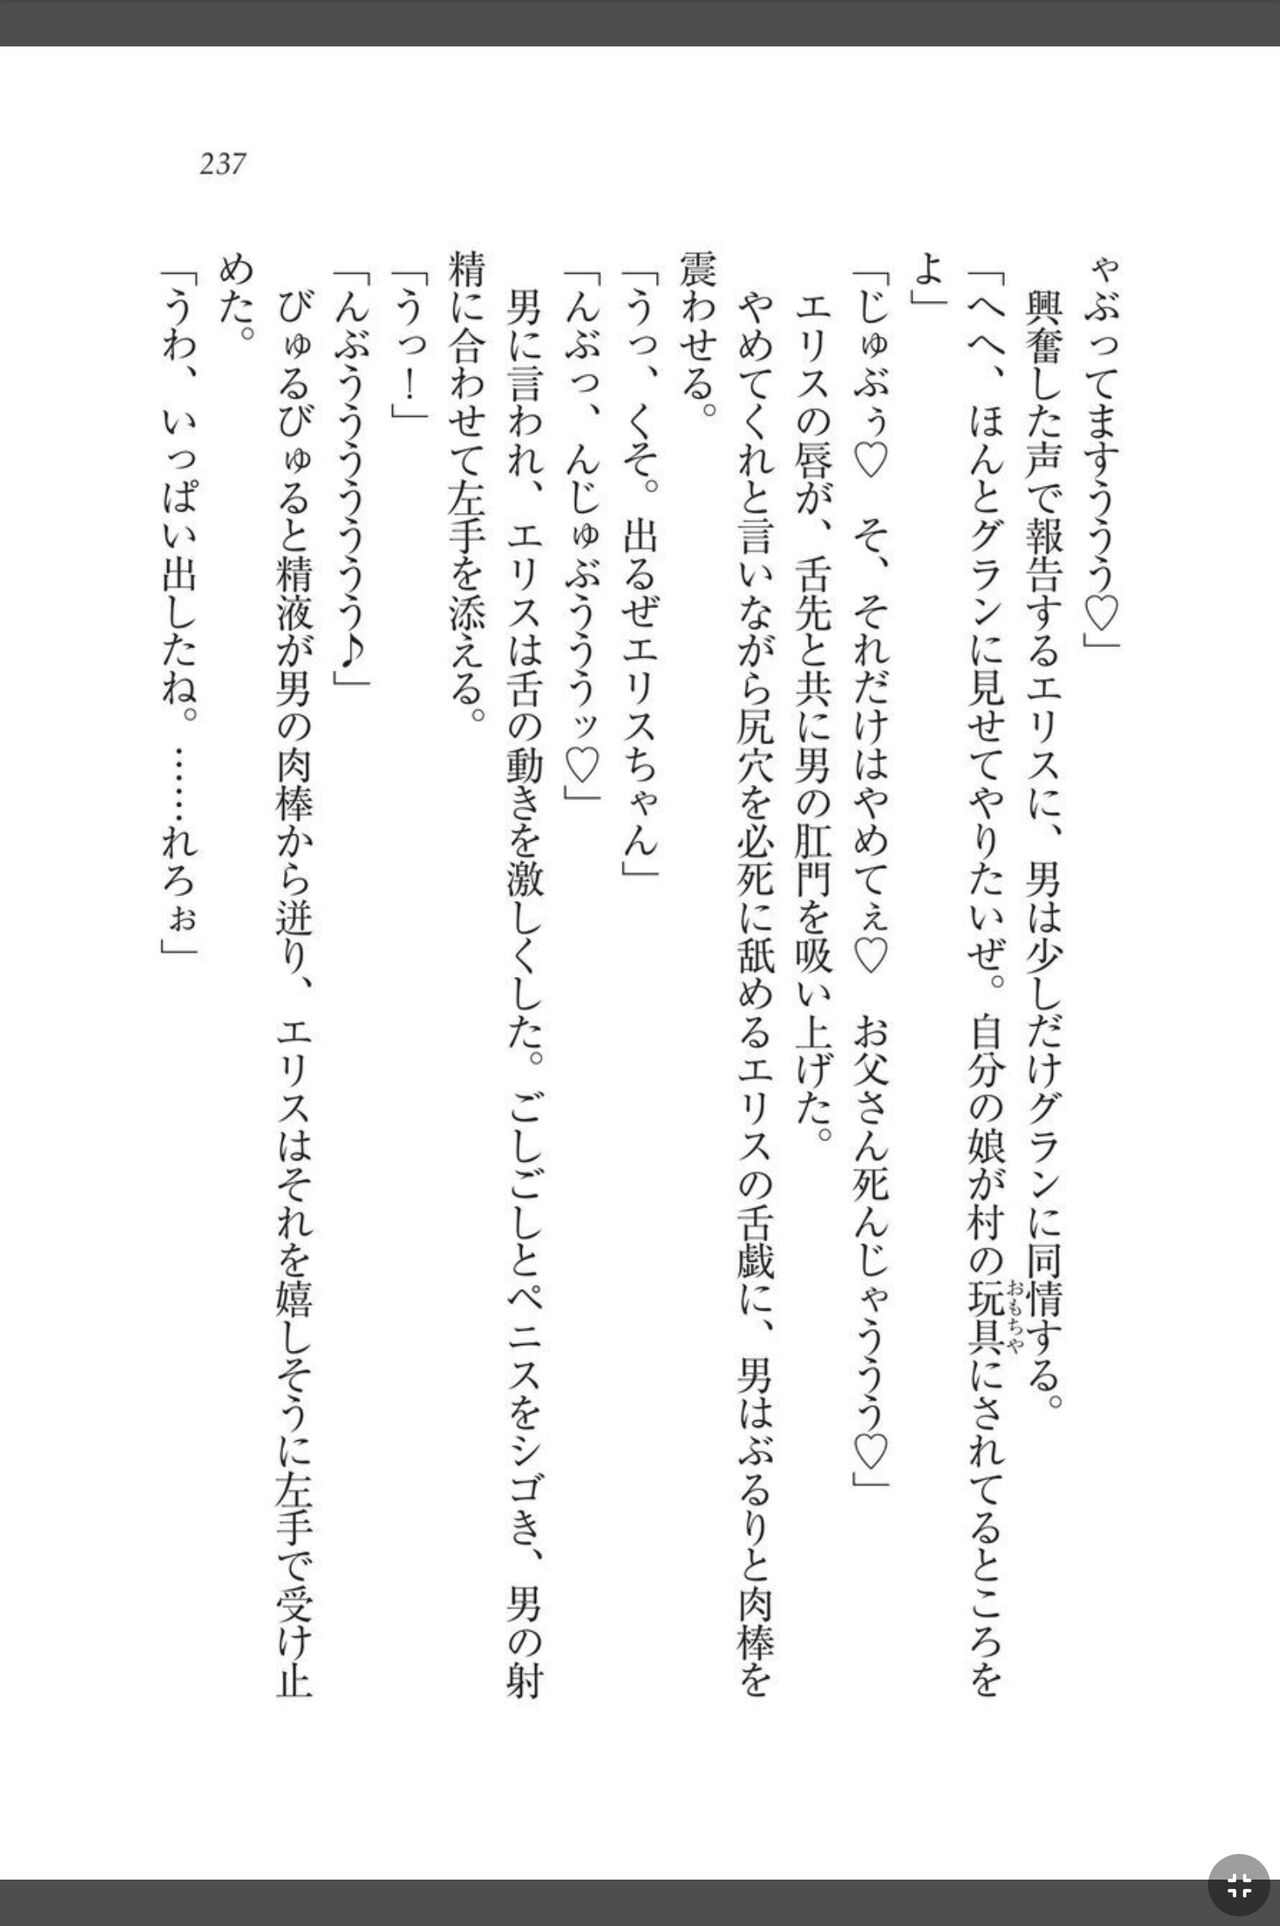 237
ゃぶってますううう♡」
　興奮した声で報告するエリスに、男は少しだけグランに同情する。
「へへ、ほんとグランに見せてやりたいぜ。自分の娘が村の玩具にされてるところを
おもちゃ
よ」
「じゅぶぅ♡　そ、それだけはやめてぇ♡　お父さん死んじゃううう♡」
　エリスの唇が、舌先と共に男の肛門を吸い上げた。
　やめてくれと言いながら尻穴を必死に舐めるエリスの舌戯に、男はぶるりと肉棒を
震わせる。
「うっ、くそ。出るぜエリスちゃん」
「んぶっ、んじゅぶうううッ♡」
　男に言われ、エリスは舌の動きを激しくした。ごしごしとペニスをシゴき、男の射
精に合わせて左手を添える。
「うっ！」
「んぶううううううう♪」
　びゅるびゅると精液が男の肉棒から迸り、エリスはそれを嬉しそうに左手で受け止
めた。
「うわ、いっぱい出したね。……れろぉ」